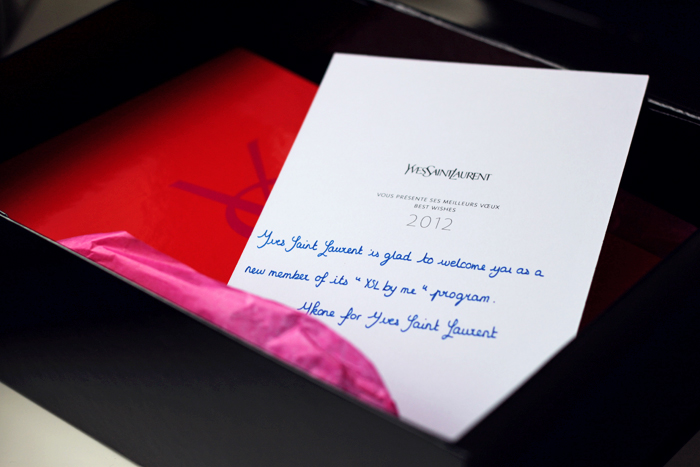 YVESSAINTLAURENT
VOUS PRÉSENTE SES MEILLEURS VŒUX
BEST WISHES
2012
Yves Saint Laurent is glad to welcome you as a
new member of its " YSL by me " program.
for Yves Saint Laurent